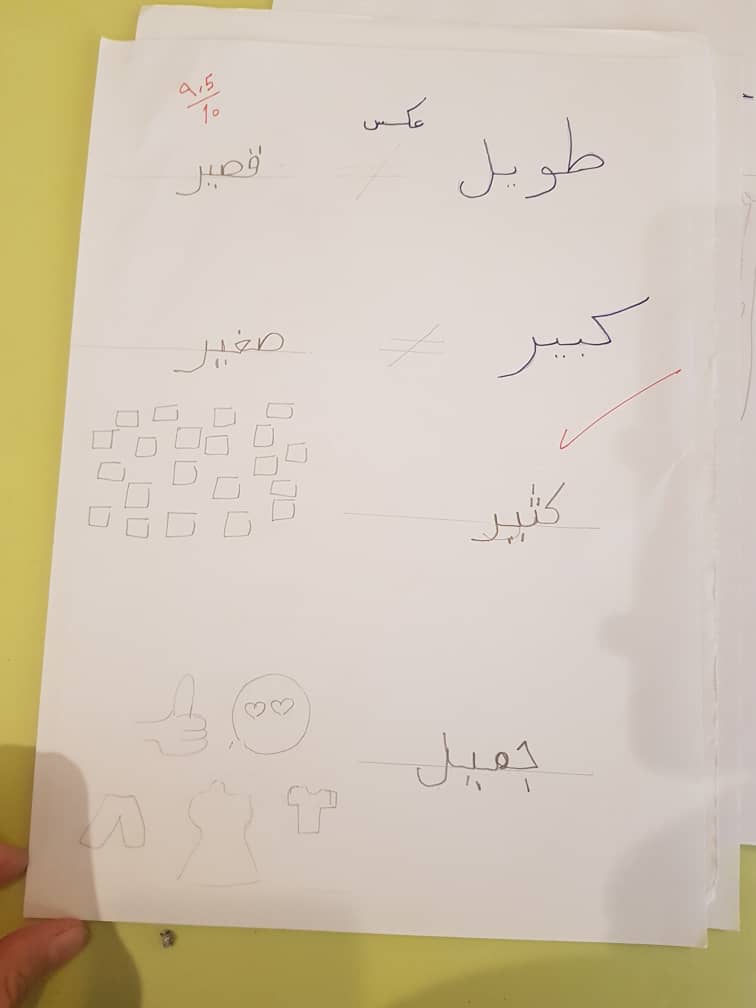 9,5
10
عكس
طويل ≠ قصير
كبير ≠ صغير
كثير
جميل